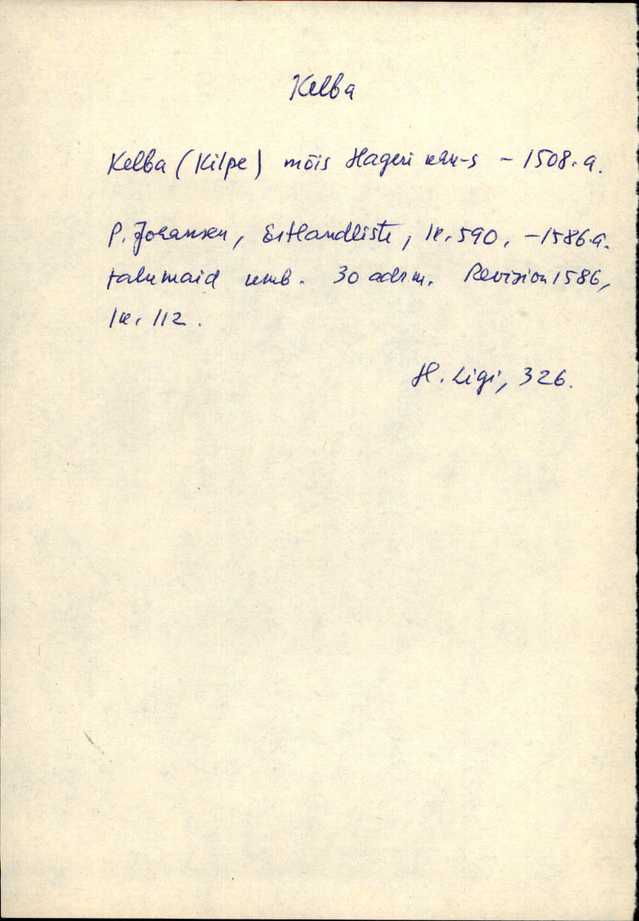 Kelba
Kelba (Kilpe) mõis Hageri khk-s - 1508. a.
P. Johansen, Estlandliste, lk. 590. - 1586. a.
talumaid umb. 30 adrm. Revision 1586,
lk. 112.
H. Ligi, 326.